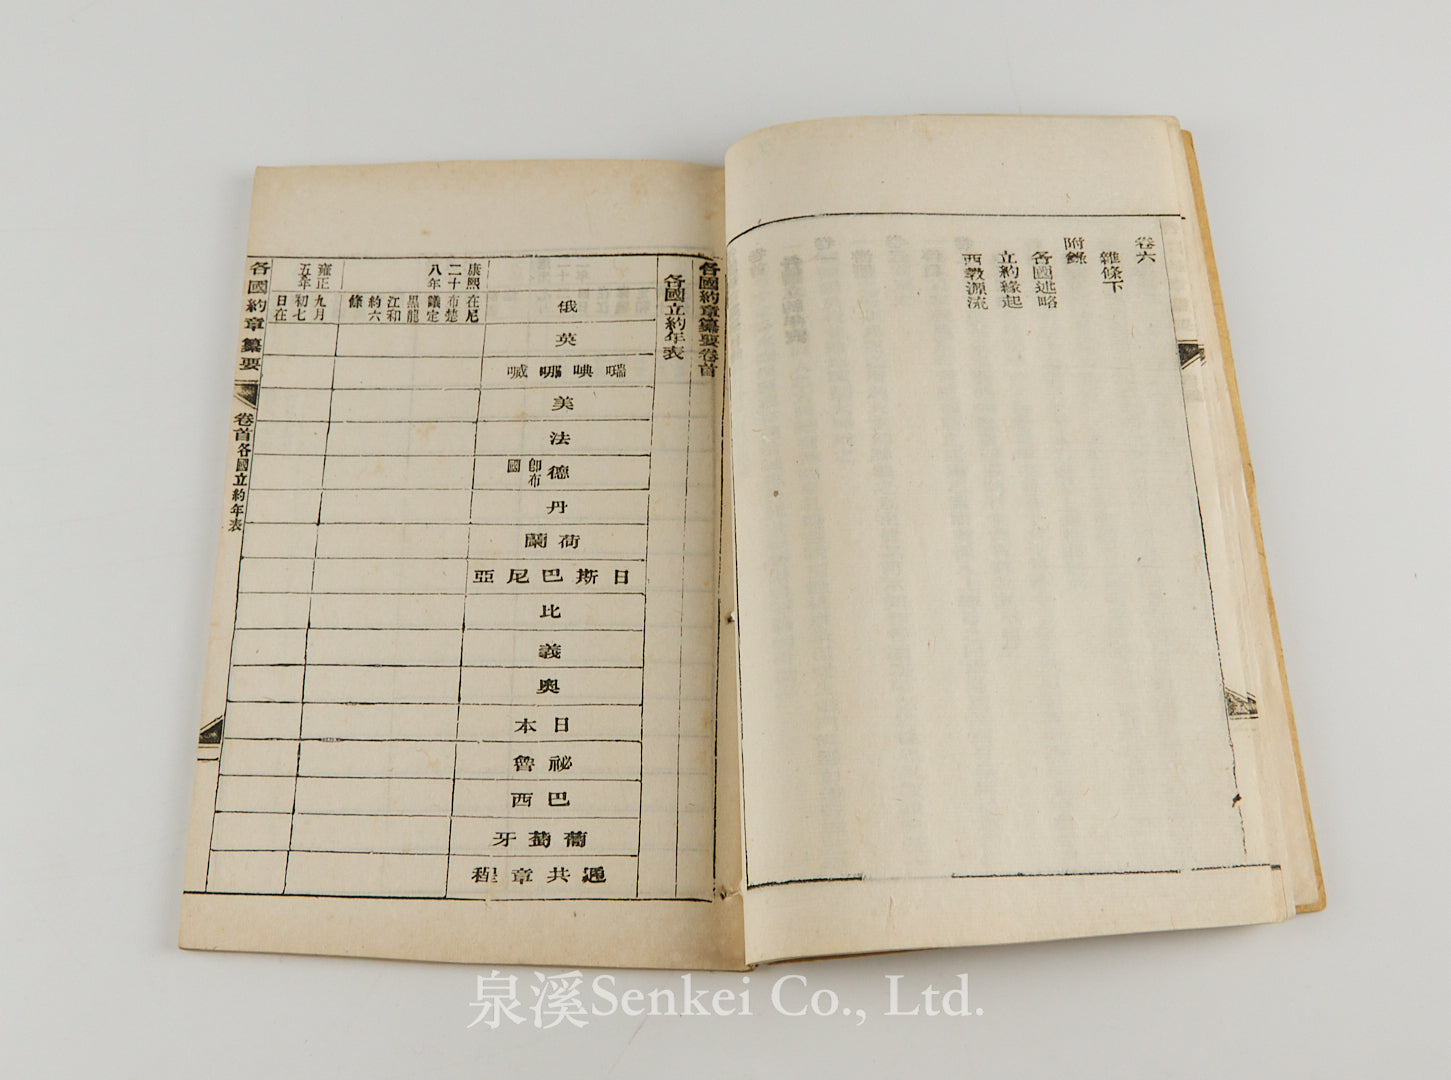 卷六
雜條下
附錄
各國述略
立約緣起
西教源流
各國約章纂要卷首
各國立約年表
俄
英
㗂㖭哪喴
美
法
德 卽布國
丹
荷蘭
日斯巴尼亞
比
義
奧
日本
祕魯
巴西
葡萄牙
通共章程
康熙二十八年
在尼布楚議定黑龍江和約六條
雍正五年
九月初七日在
各國約章纂要
卷首各國立約年表
泉溪Senkei Co., Ltd.